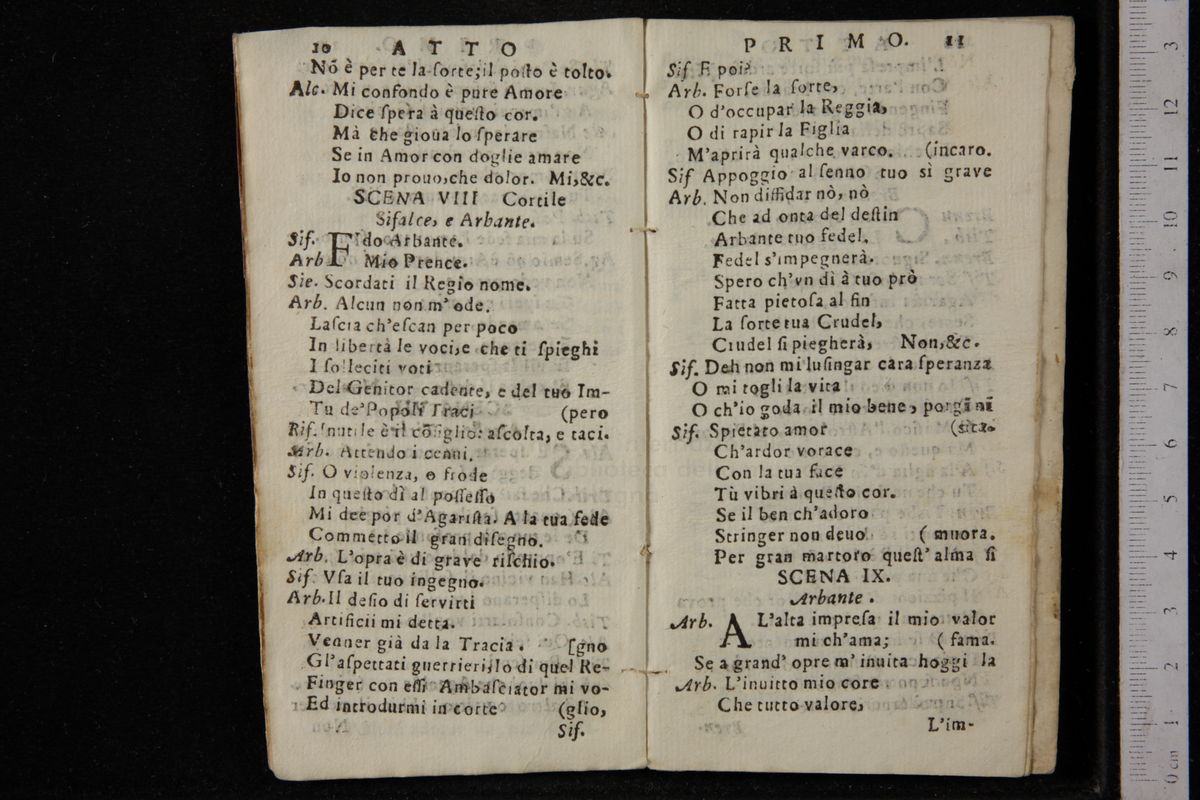 10 ATTO
Nõ è per te la sorte; il posto è tolto.
Alc. Mi confondo è pure Amore
Dice spera à questo cor.
Mà che gioua lo sperare
Se in Amor con doglie amare
Io non prouo, che dolor. Mi, &c.
SCENA VIII Cortile
Sifalce, e Arbante.
Sif. Fido Arbante.
Arb Mio Prence.
Sie. Scordati il Regio nome.
Arb. Alcun non m'ode.
Lascia ch'escan per poco
In libertà le voci, e che ti spieghi
I solleciti voti
Del Genitor cadente, e del tuo Im-
Tu de' Popoli Traci (pero
Rif. Inutile è il cõsiglio: ascolta, e taci.
Arb. Attendo i cenni.
Sif. O violenza, o frode
In questo dì al possesso
Mi dee por d'Agarista. A la tua fede
Commetto il gran disegno.
Arb. L'opra è di grave rischio.
Sif. Vsa il tuo ingegno.
Arb. Il desio di servirti
Artificii mi detta.
Venner già da la Tracia. [gno
Gl'aspettati guerrieri, Io di quel Re-
Finger con essi Ambasciator mi vo-
Ed introdurmi in corte (glio,
Sif.
PRIMO. 11
Sif E poi?
Arb. Forse la sorte,
O d'occupar la Reggia,
O di rapir la Figlia
M'aprirà qualche varco. (incaro.
Sif Appoggio al senno tuo sì grave
Arb. Non diffidar nò, nò
Che ad onta del destin
Arbante tuo fedel.
Fedel s'impegnerà.
Spero ch'vn dì à tuo prò
Fatta pietosa al fin
La sorte tua Crudel,
Crudel si piegherà, Non, &c.
Sif. Deh non mi lusingar cara speranza
O mi togli la vita
O ch'io goda il mio bene, porgĩ nĩ
Sif. Spietato amor (sita.
Ch'ardor vorace
Con la tua face
Tù vibri à questo cor.
Se il ben ch'adoro
Stringer non deuo (muora.
Per gran martoro quest' alma si
SCENA IX.
Arbante.
Arb. AL'alta impresa il mio valor
mi ch'ama; (fama.
Se a grand' opre m' inuita hoggi la
Arb. L'inuitto mio core
Che tutto valore,
L'im-